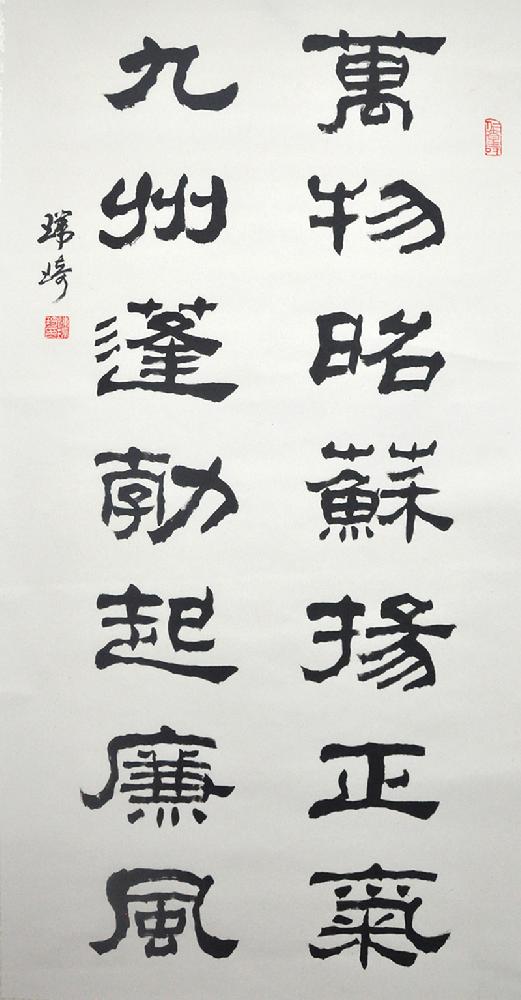 萬物昭蘇揚正氣
九州蓬勃起廉風